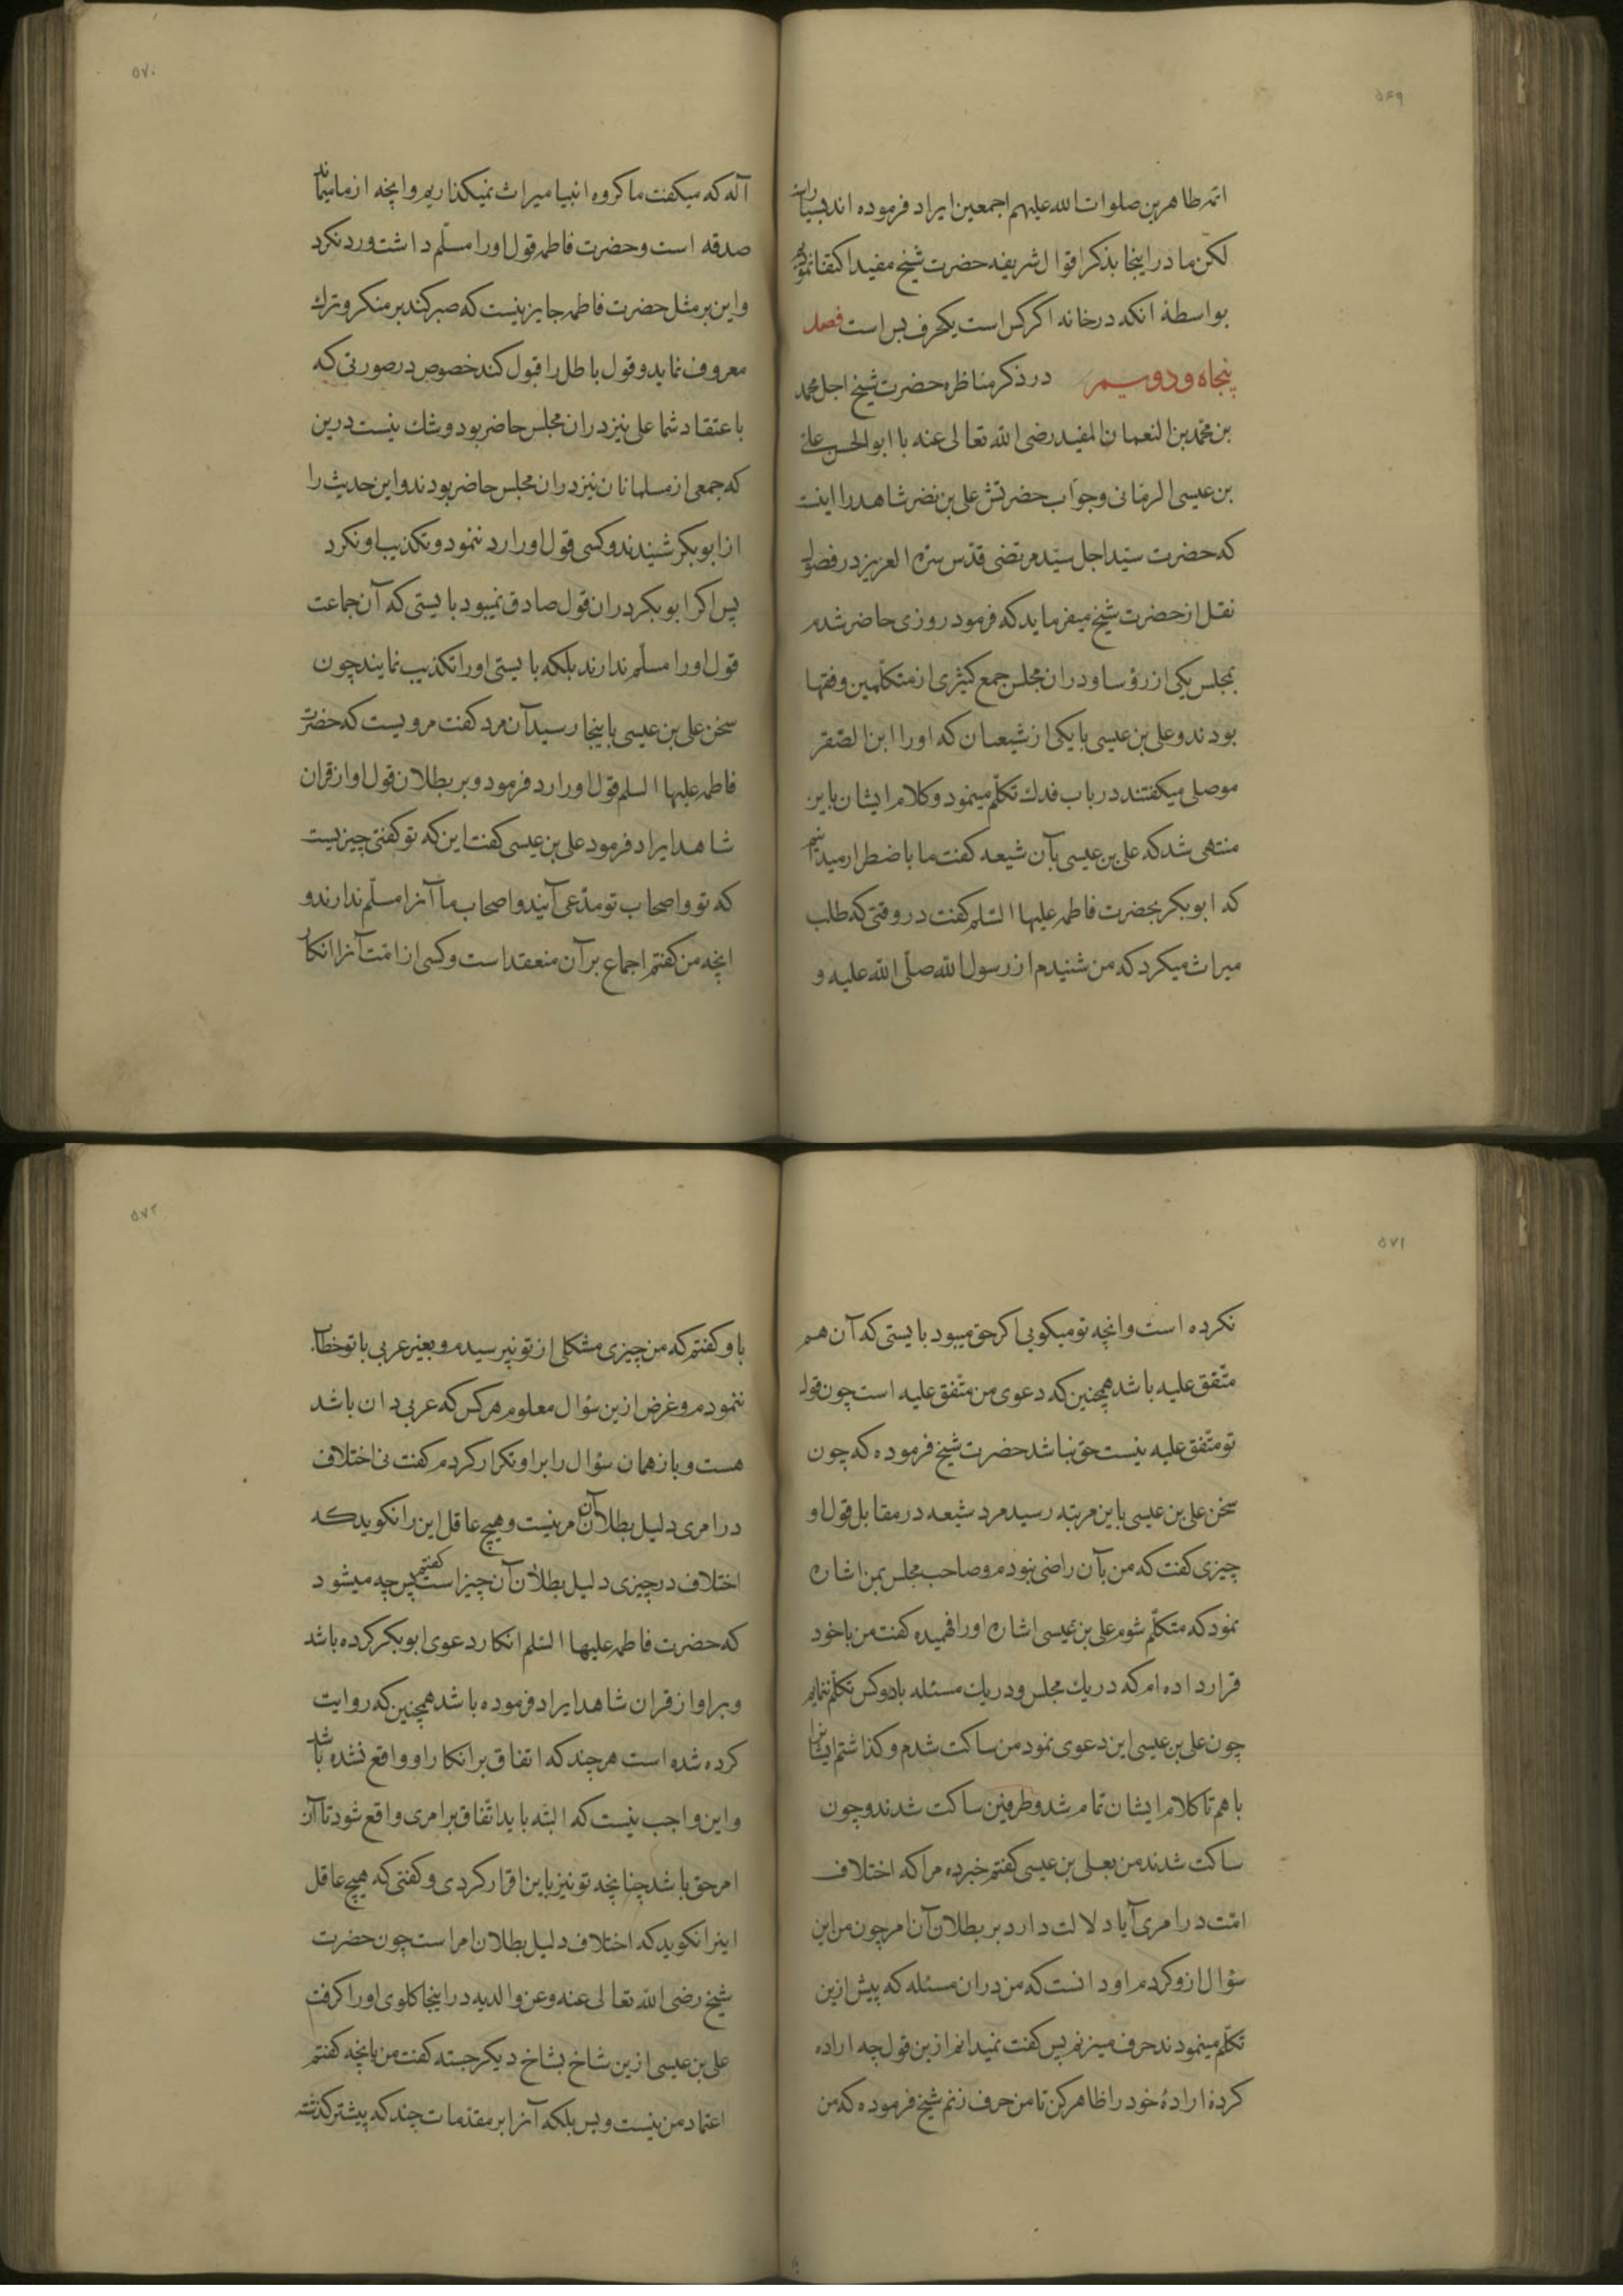 ۵۶۹
ائمه طاهرین صلوات الله علیهم اجمعین ایراد فرموده اند بسیارند
لکن ما در اینجا بذکر اقوال شریفه حضرت شیخ مفید اکتفا نمودیم
بواسطهٔ انکه در خانه اکر کس است یکحرف بس است فصل
پنجاه و دوسیم در ذکر مناظره حضرت شیخ اجل محمد
بن محمد بن النعمان المفید رضی الله تعالی عنه با ابو الحسن علی
بن عیسی الرمّانی وجواب حضرتش علی بن نضر شاهد را اینست
که حضرت سیّد اجل سیّد مرتضی قدّس سرّه العزیز در فصول
نقل از حضرت شیخ میفرماید که فرمود روزی حاضر شدم
بمجلس یکی از رؤسا و دران مجلس جمع کثیری از متکلّمین وفقها
بودند وعلی بن عیسی با یکی از شیعیان که اورا ابن الصّقر
موصلی میکفتند در باب فدك تکلّم مینمود وکلام ایشان باین
منتهی شد که علی بن عیسی بآن شیعه کفت ما باضطرار میدانیم
که ابو بکر بحضرت فاطمه علیها السّلم کفت در وقتی که طلب
میراث میکرد که من شنیدم از رسول الله صلّی الله علیه و
۵۷۰
آله که میکفت ما کروه انبیا میراث نمیکذاریم وانچه از ما میماند
صدقه است وحضرت فاطمه قول اورا مسلّم داشت ورد نکرد
واین بر مثل حضرت فاطمه جایز نیست که صبر کند بر منکر وترك
معروف نماید وقول باطل را قبول کند خصوص در صورتی که
باعتقاد شما علی نیز دران مجلس حاضر بود وشك نیست درین
که جمعی از مسلمانان نیز دران مجلس حاضر بودند واین حدیث را
از ابو بکر شنیدند وکسی قول اورا رد ننمود وتکذیب او نکرد
پس اکر ابو بکر دران قول صادق نمیبود بایستی که آن جماعت
قول اورا مسلّم ندارند بلکه بایستی اورا تکذیب نمایند چون
سخن علی بن عیسی باینجا رسید آن مرد کفت مرویست که حضرت
فاطمه علیها السلم قول اورا رد فرمود وبر بطلان قول او از قران
شاهد ایراد فرمود علی بن عیسی کفت این که تو کفتی چیزیست
که تو واصحاب تو مدّعی آنید واصحاب ما آنرا مسلّم ندارند و
انچه من کفتم اجماع بر آن منعقد است وکسی از امّت آنرا انکار
۵۷۱
نکرده است وانچه تو میکویی اکر حق میبود بایستی که آن هم
متّفق علیه باشد همچنین که دعوی من متّفق علیه است چون قول
تو متّفق علیه نیست حق نباشد حضرت شیخ فرموده که چون
سخن علی بن عیسی باین مرتبه رسید مرد شیعه در مقابل قول او
چیزی کفت که من بآن راضی نبودم وصاحب مجلس بمن اشاره
نمود که متکلّم شوم علی بن عیسی اشاره اورا فهمیده کفت من با خود
قرار داده ام که در یك مجلس ودر یك مسئله با دو کس تکلّم ننمایم
چون علی بن عیسی این دعوی نمود من ساکت شدم وکذاشتم ایشانرا
باهم تا کلام ایشان تمام شد وطرفین ساکت شدند وچون
ساکت شدند من بعلی بن عیسی کفتم خبر ده مرا که اختلاف
امّت در امری آیا دلالت دارد بر بطلان آن امر چون من این
سؤال ازو کردم او دانست که من دران مسئله که پیش ازین
تکلّم مینمودند حرف میزنم پس کفت نمیدانم ازین قول چه اراده
کردهٔ ارادهٔ خود را ظاهر کن تا من حرف زنم شیخ فرموده که من
۵۷۲
باو کفتم که من چیزی مشکلی از تو نپرسیدم وبغیر عربی با تو خطاب
ننمودم وغرض ازین سؤال معلوم هر کس که عربی دان باشد
هست وباز همان سؤال را بر او تکرار کردم کفت نی اختلاف
در امری دلیل بطلان آن امر نیست وهیچ عاقل این را نکوید که
اختلاف در چیزی دلیل بطلان آن چیز است کفتم پس چه میشود
که حضرت فاطمه علیها السّلم انکار دعوی ابو بکر کرده باشد
وبر او از قران شاهد ایراد فرموده باشد همچنین که روایت
کرده شده است هر چند که اتفاق بر انکار او واقع نشده باشد
واین واجب نیست که البتّه باید اتّفاق بر امری واقع شود تا آن
امر حق باشد چنانچه تو نیز باین اقرار کردی وکفتی که هیچ عاقل
اینرا نکوید که اختلاف دلیل بطلان امر است چون حضرت
شیخ رضی الله تعالی عنه وعن والدیه در اینجا کلوی اورا کرفت
علی بن عیسی ازین شاخ بشاخ دیکر جسته کفت من بانچه کفتم
اعتماد من نیست وبس بلکه آنرا بر مقدمات چند که پیشتر کذشته